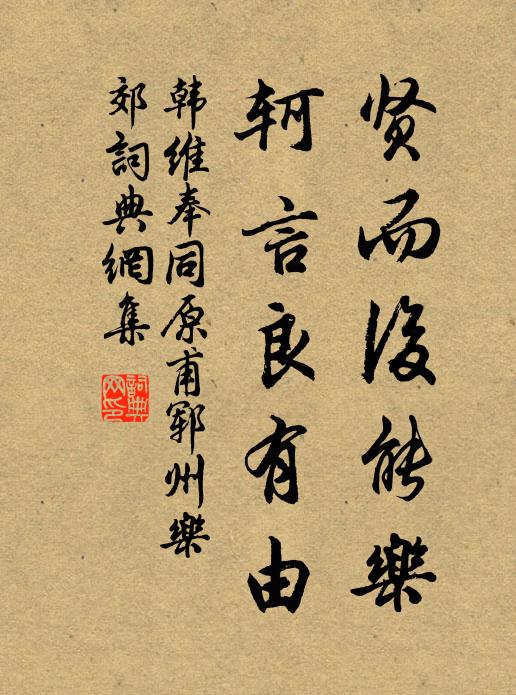 贤而後能樂
轲言良有由
韩維奉同原甫郓州樂
郊詞典網集
詞典
网印